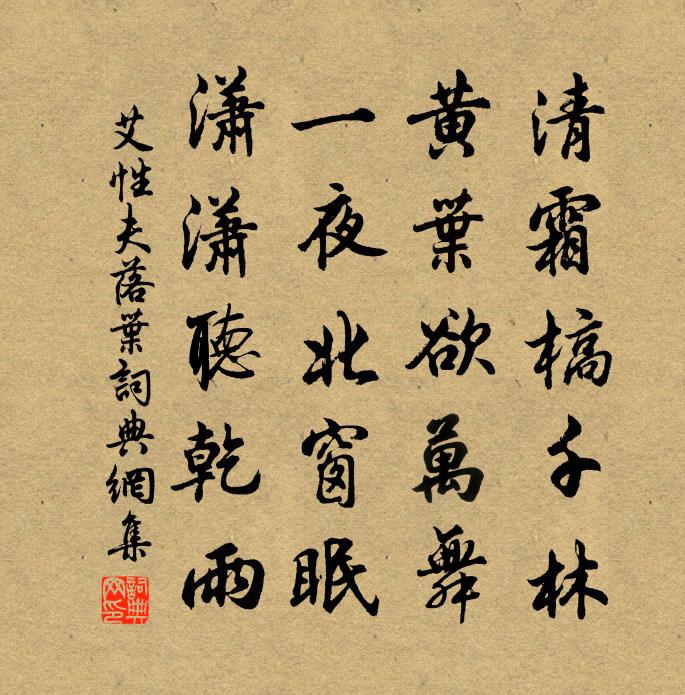 清霜槁千林
黃葉欲萬舞
一夜北窗眠
瀟瀟聽乾雨
艾性夫落葉詞典網集
詞典網印